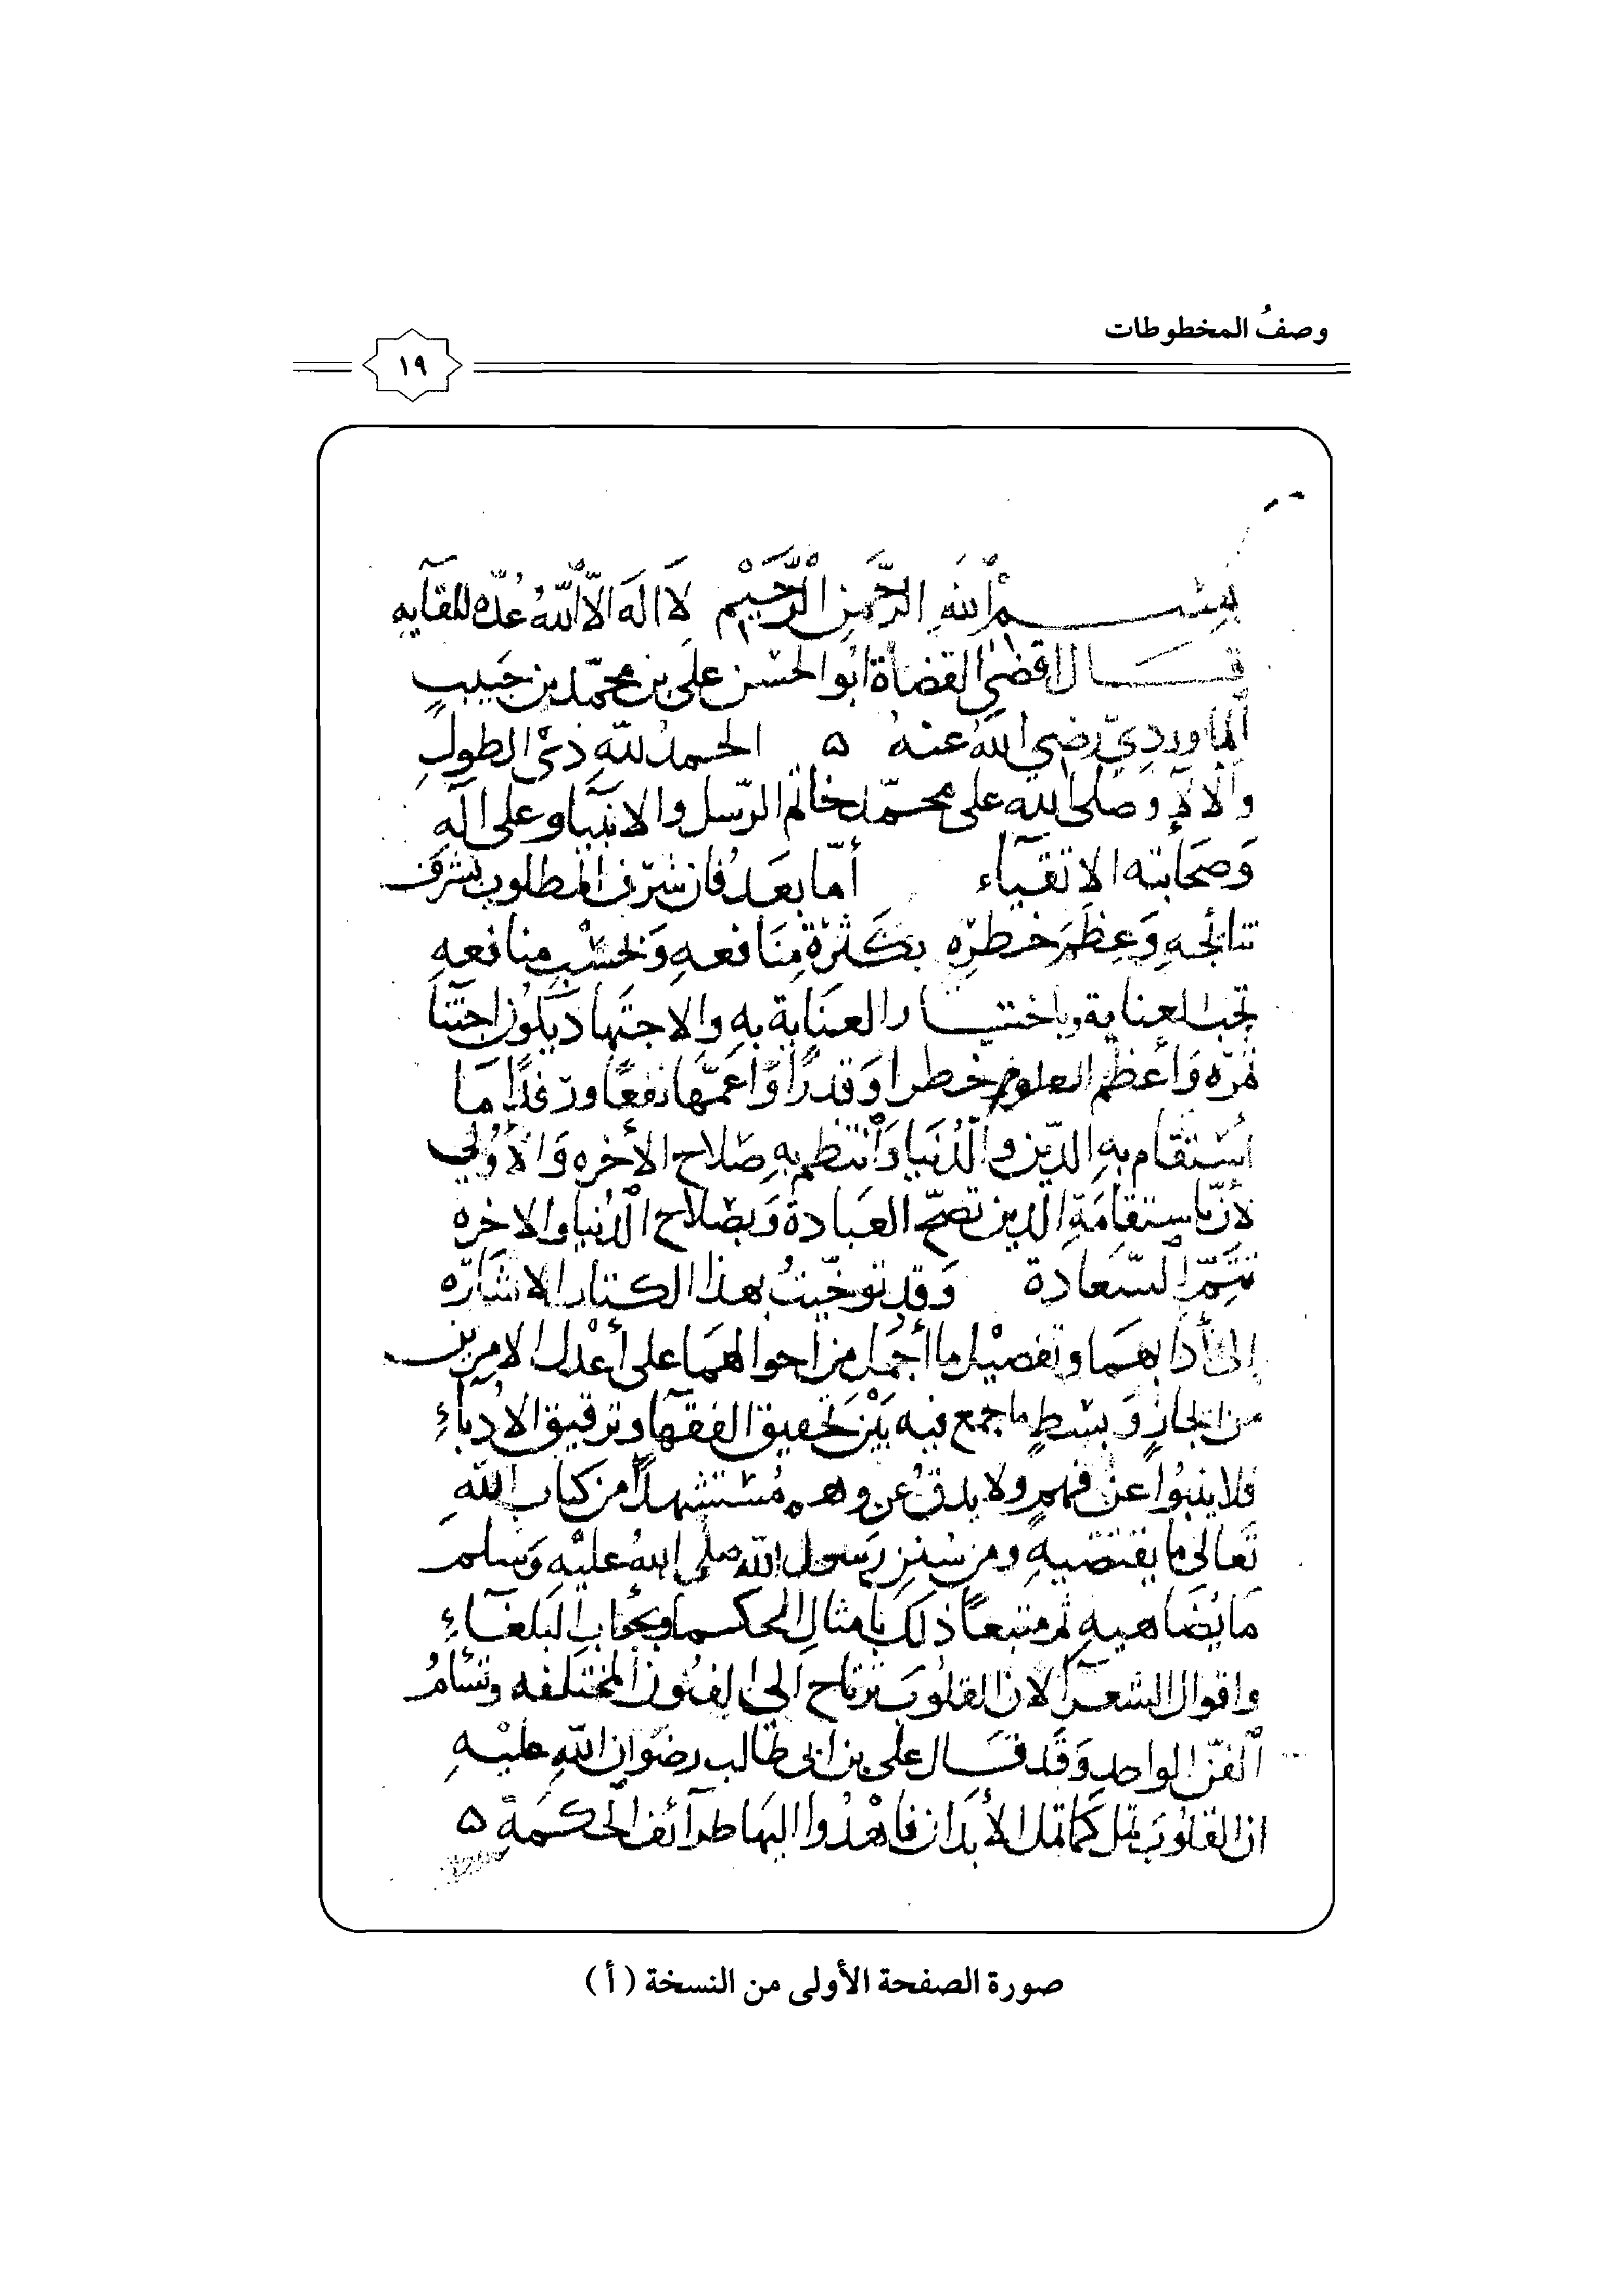 وصفُ المخطوطات
١٩
بسم اللهِ الرَّحمنِ الرَّحَيْمِ لَا الَهَ الَّا اللّهُ عُدّه للقآيه
قال اقضَى القضاة ابُو الحسَن علَى بن محمّد بن حَبيبٍ
المآورديّ رضي اللهُ عنهُ ۵ الحمدُ للّهِ ذى الطولِ
والالآءِ وصَلى الله على محمّد خاتم الرّسل والانبيآ وعلى الهِ
وَصحَابته الاتقيآء أمّا بعَدُ فان شرّف المطلوب بشرَف
نتائجهِ وَعِظَمَ خطرِه بكثرَة مِنَافعهِ وَبحسْبِ منافعهِ
تجبُ العناية وباختيار العنَاية بهِ والاجتهاد يكون اجتنا
ثمرّه وَأعظم العلوم خطرا وَقدرًا وَاعمّها نفعًا ورفدًا مَا
اُستقام بهِ الدّين والدّنيا وَانتظم بهِ صَلاح الأخره وَالأولى
لأنّ باستقامَةِ الدين تصحّ العبادة وَبصَلاح الدُنيا والاخره
تتمّ السّعادة وَقد توخّيتُ بهذا الكتاب الاشارَه
إلى أدابهمَا وتفصيل ما أجمُل من احوالهمَا على أعْدل الامرين
من ايجازٍ وَبسَطٍ ما جمع فيه بَيْن تحقيق الفقهآ وترقيق الادبآءِ
فلا ينبُوا عن فهمٍ ولا يدقُ عن وهم مُسْتشهدًا من كتاب اللّهِ
تَعالى ما يقتضيهِ ومن سُننِ رَسول الله صلى اللهُ عليْهِ وَسَلم
مَا يُضَاهيهِ ثم متبعًا ذلكَ بامثالِ الحكمآ وبجوابِ البلغَآءِ
واقوال الشعرآ لان القلوبَ ترتاح الى الفنُون المختلفه وتسَأمُ
الفنّ الواحدِ وَقَد قَال علَى بن ابى طالب رضوَان اللّهِ عليْهِ
ان القلوُبَ تمل كمَا تمل الأبدَان فاهْدُوا اليها طرآئف الحكمَة ۵
صورة الصفحة الأولى من النسخة (أ)